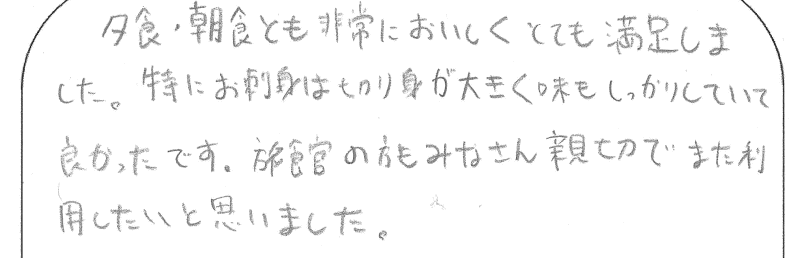 夕食・朝食とも非常においしくとても満足しま
した。特にお刺身は切り身が大きく味もしっかりしていて
良かったです。旅館の方もみなさん親切でまた利
用したいと思いました。